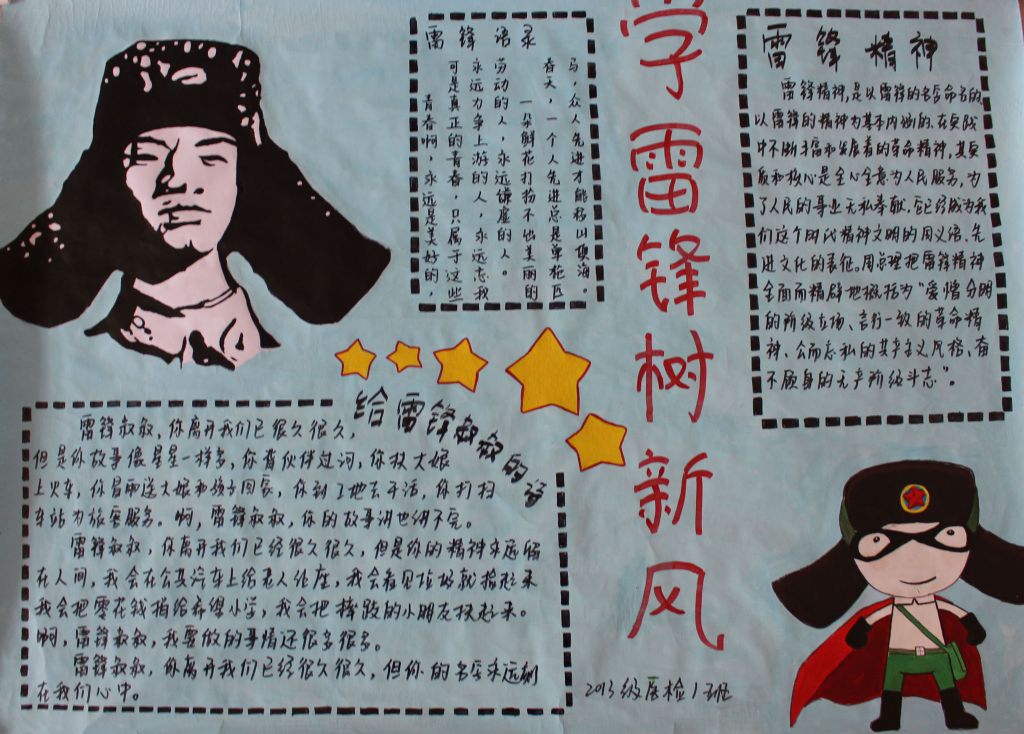 学雷锋树新风
雷锋语录
青春啊，永远是美好的，
可是真正的青春，只属于这些
永远力争上游的人，永远忘我
劳动的人，永远谦虚的人。
一朵鲜花打扮不出美丽的
春天，一个人先进总是单枪匹
马，众人先进才能移山填海。
雷锋精神
雷锋精神，是以雷锋的名字命名的、
以雷锋的精神为基本内涵的、在实践
中不断丰富和发展着的革命精神，其实
质和核心是全心全意为人民服务，为
了人民的事业无私奉献。它已经成为我
们这个时代精神文明的同义语、先
进文化的表征。周总理把雷锋精神
全面而精辟地概括为“爱憎分明
的阶级立场、言行一致的革命精
神、公而忘私的共产主义风格、奋
不顾身的无产阶级斗志”。
给雷锋叔叔的诗
雷锋叔叔，你离开我们已很久很久，
但是你故事像星星一样多，你背伙伴过河，你扶大娘
上火车，你冒雨送大娘和孩子回家，你到工地去干活，你打扫
车站为旅客服务。啊，雷锋叔叔，你的故事讲也讲不完。
雷锋叔叔，你离开我们已经很久很久，但是你的精神永远留
在人间，我会在公共汽车上给老人让座，我会看见垃圾就捡起来
我会把零花钱捐给希望小学，我会把摔跤的小朋友扶起来。
啊，雷锋叔叔，我要做的事情还很多很多。
雷锋叔叔，你离开我们已经很久很久，但你的名字永远刻
在我们心中。
2013级医检1班